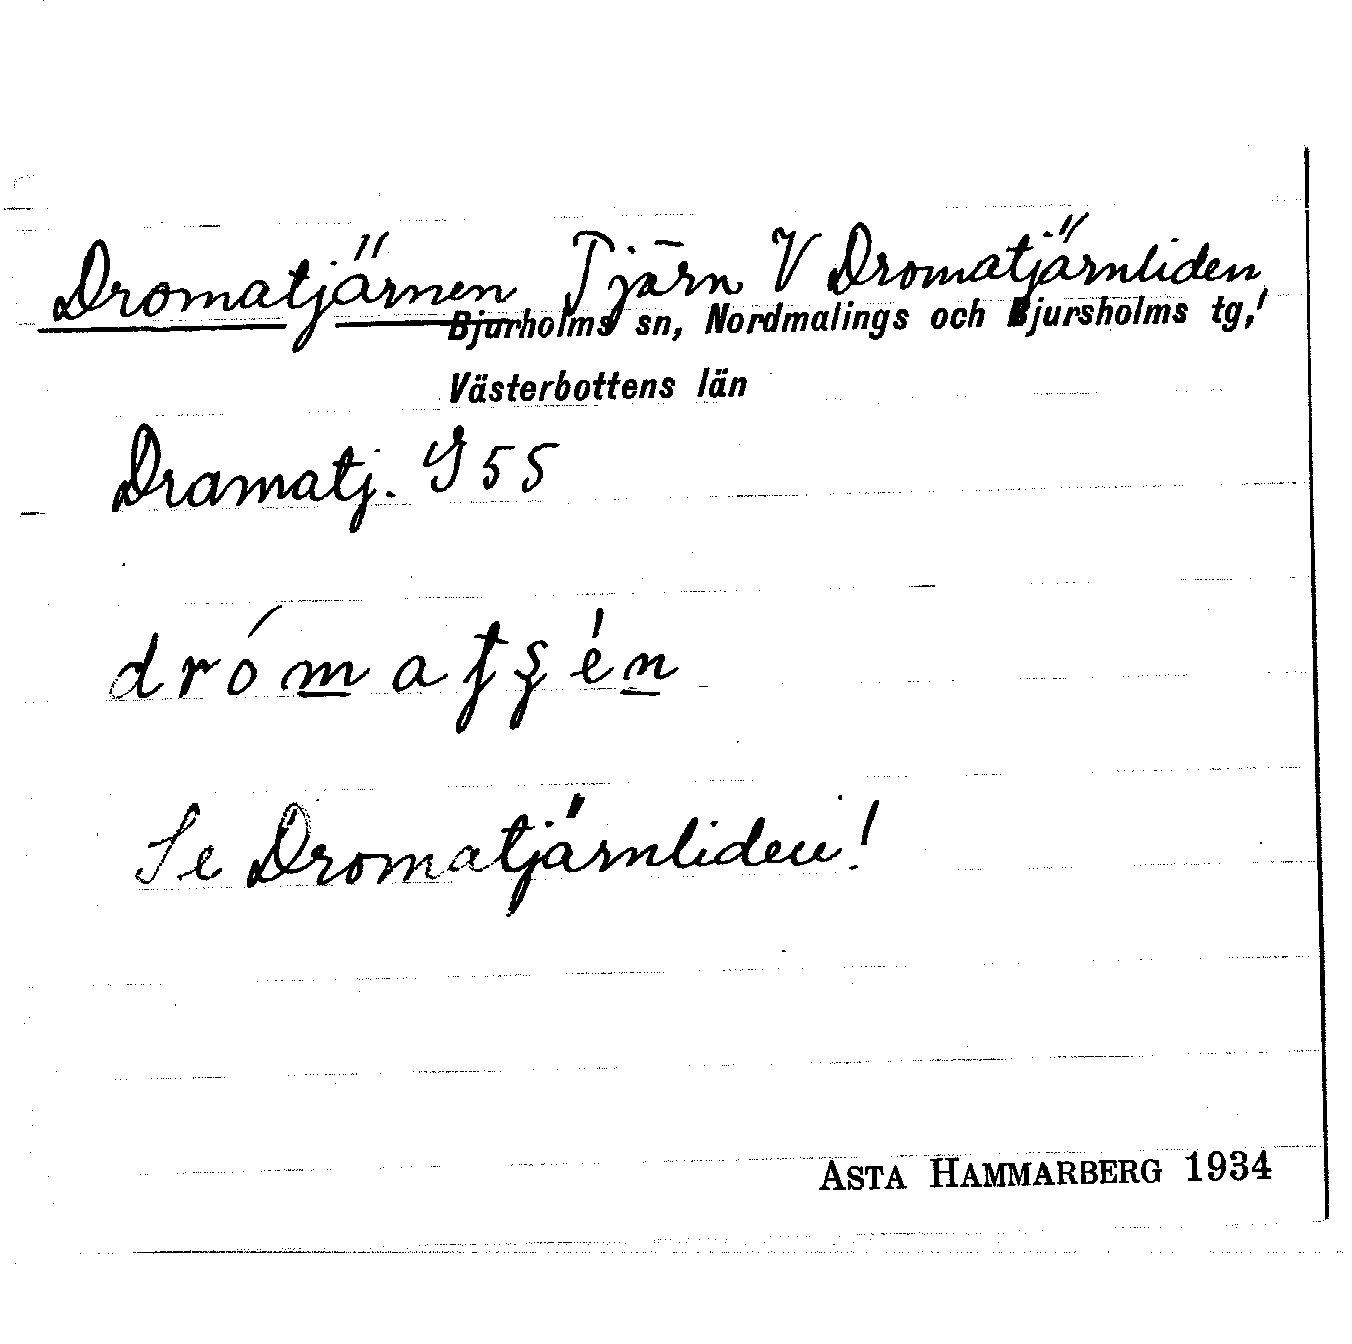 Dromatjärnen Tjärn V Dromatjärnliden!
Bjurholms sn, Nordmalings och Bjursholms tg,
Västerbottens län
Dramatj. G 55
Se Dromatjärnliden!
ASTA HAMMARBERG 1934